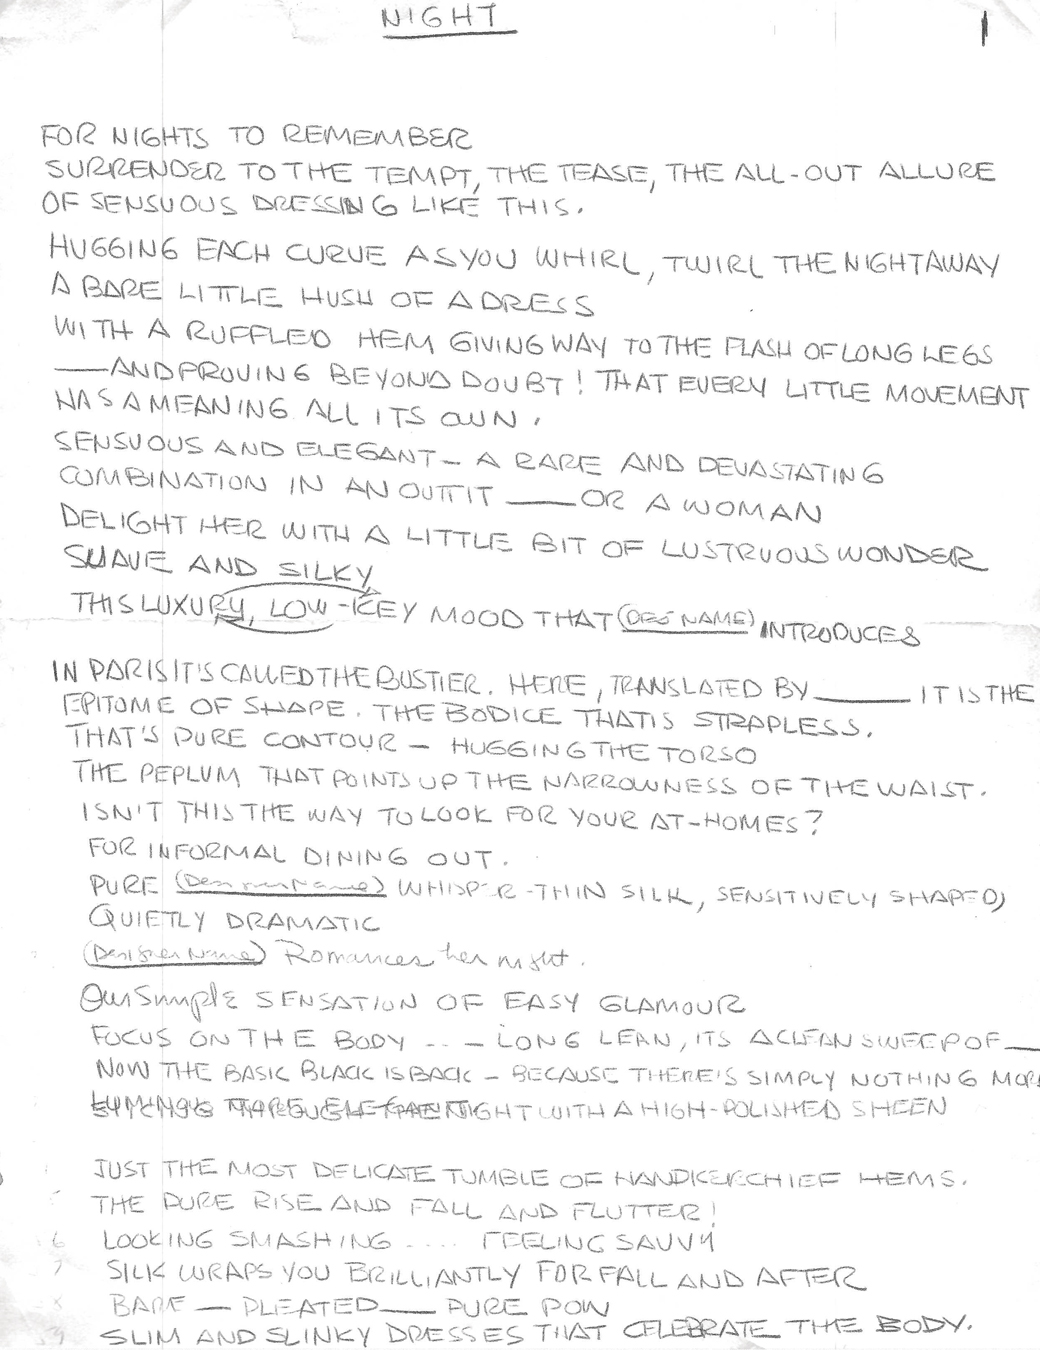 NIGHT
1
FOR NIGHTS TO REMEMBER
SURRENDER TO THE TEMPT, THE TEASE, THE ALL-OUT ALLURE
OF SENSUOUS DRESSING LIKE THIS.
HUGGING EACH CURVE AS YOU WHIRL, TWIRL THE NIGHT AWAY
A BARE LITTLE HUSH OF A DRESS
WITH A RUFFLED HEM GIVING WAY TO THE FLASH OF LONG LEGS
—— AND PROVING BEYOND DOUBT! THAT EVERY LITTLE MOVEMENT
HAS A MEANING ALL ITS OWN.
SENSUOUS AND ELEGANT – A RARE AND DEVASTATING
COMBINATION IN AN OUTFIT ____ OR A WOMAN
DELIGHT HER WITH A LITTLE BIT OF LUSTRUOUS WONDER
SUAVE AND SILKY
THIS LUXURY, LOW-KEY MOOD THAT (DES NAME) INTRODUCES
IN PARIS IT'S CALLED THE BUSTIER. HERE, TRANSLATED BY ______ IT IS THE
EPITOME OF SHAPE. THE BODICE THAT IS STRAPLESS.
THAT'S PURE CONTOUR – HUGGING THE TORSO
THE PEPLUM THAT POINTS UP THE NARROWNESS OF THE WAIST.
ISN'T THIS THE WAY TO LOOK FOR YOUR AT-HOMES?
FOR INFORMAL DINING OUT.
PURE (Designer Name) WHISPER-THIN SILK, SENSITIVELY SHAPED,
QUIETLY DRAMATIC
(Designer Name) Romances her night.
Our Simple SENSATION OF EASY GLAMOUR
FOCUS ON THE BODY .. – LONG LEAN, ITS A CLEAN SWEEP OF ___
NOW THE BASIC BLACK IS BACK – BECAUSE THERE'S SIMPLY NOTHING MORE
NIGHT WITH A HIGH-POLISHED SHEEN
JUST THE MOST DELICATE TUMBLE OF HANDKERCHIEF HEMS.
THE PURE RISE AND FALL AND FLUTTER!
LOOKING SMASHING .... FEELING SAVVY
SILK WRAPS YOU BRILLIANTLY FOR FALL AND AFTER
BARE — PLEATED —— PURE POW
SLIM AND SLINKY DRESSES THAT CELEBRATE THE BODY.